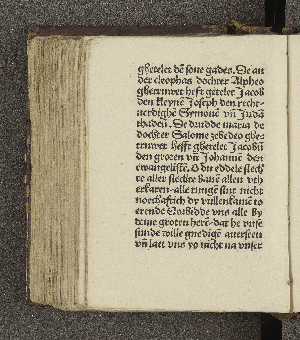 ghetelet de sone gades. De an
der cleophas dochter Alpheo
ghetruwet heft getelet Jacob
den kleyne Joseph den recht-
uerdighe Symone vn Juda
thadeu. De drudde maria de
dochter Salome zebedeo ghe-
truwet hefft ghetelet Jacobu
den groten vn Johanne den
ewangeliste. O du eddele slech
te aller slechte bauē allen vth
erkaren
alle
nicht
to
erende vns alle by
deme groten here dat he vnse
sunde wille gnedige
vn late vns yo nicht na vnser